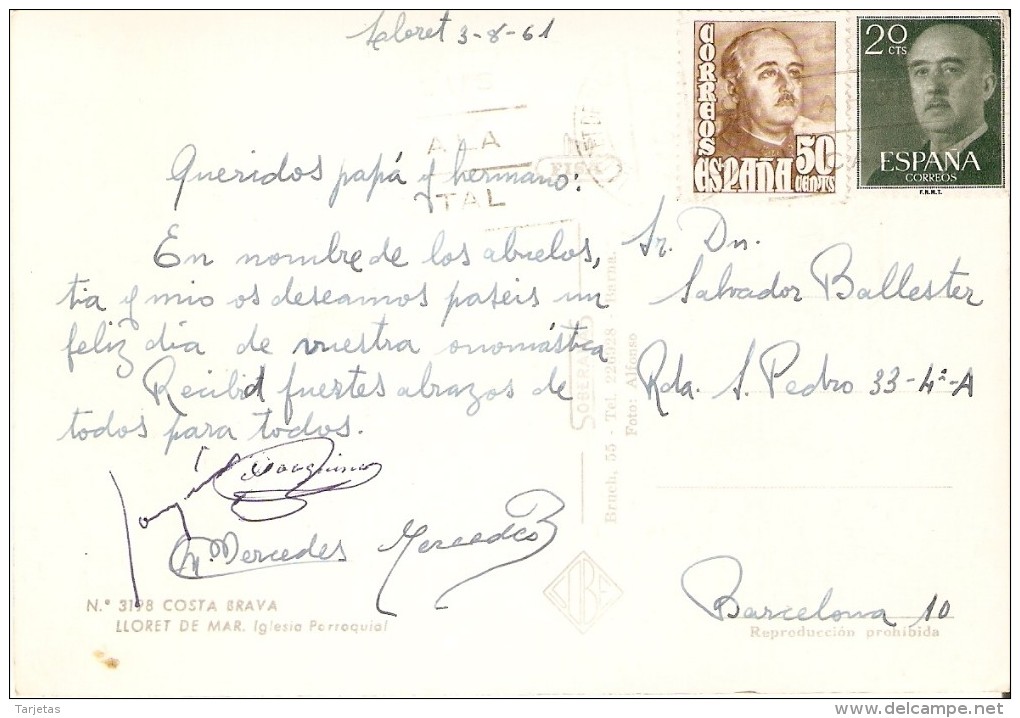 Lloret 3-8-61
CORREOS
ESPAÑA
50
CENTS
20
CTS
ESPAÑA
CORREOS
F.N.M.T.
A LA
TAL
Queridos papá y hermano:
En nombre de los abuelos,
tia y mio os deseamos paseis un
feliz dia de vuestra onomástica
Recibid fuertes abrazos de
todos para todos.
Joaquina
M. Mercedes
Mercedes
Sr. Dn.
Salvador Ballester
Rda. S. Pedro 33-4ª-A
Barcelona 10
SOBERANAS
Bruch, 55 - Tel. 226928 - Barna.
Foto: Alfonso
N.º 3198 COSTA BRAVA
LLORET DE MAR. Iglesia Parroquial
Reproducción prohibida
Tarjetas
delcampe.net